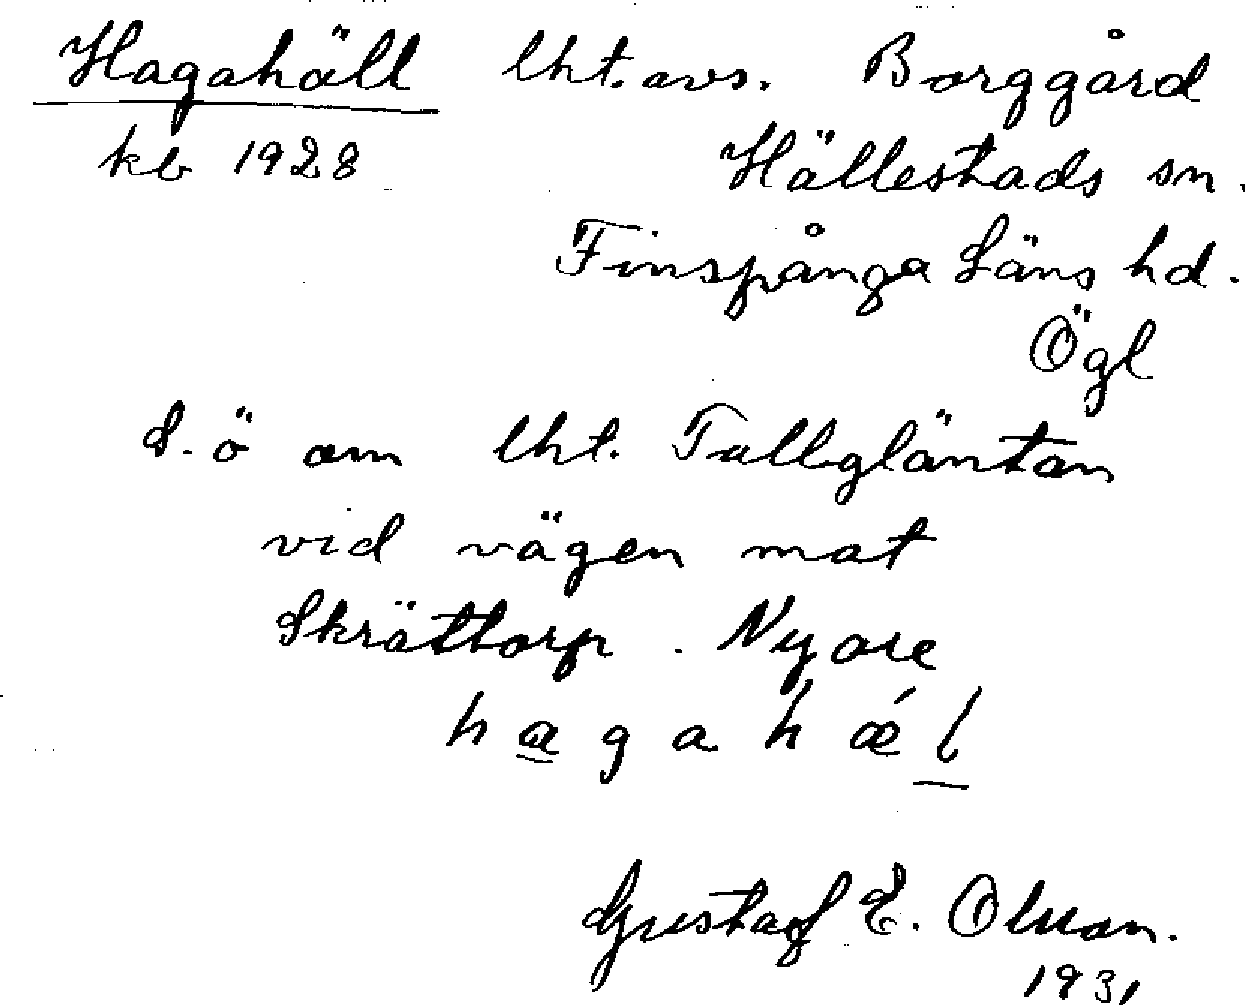 Hagahäll lht. avs. Borggård
kb 1928 Hällestads sn.
Finspånga Läns hd.
Ögl
S. ö om lht. Tallgläntan
vid vägen mat
Skrättorp. Nyare
hagahǽl
Gustaf E. Olsson.
1931